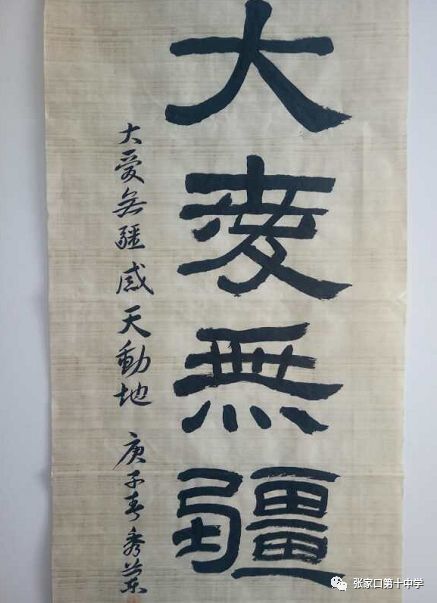 大愛無疆
大愛無疆感天動地 庚子春秀蘭
张家口第十中学